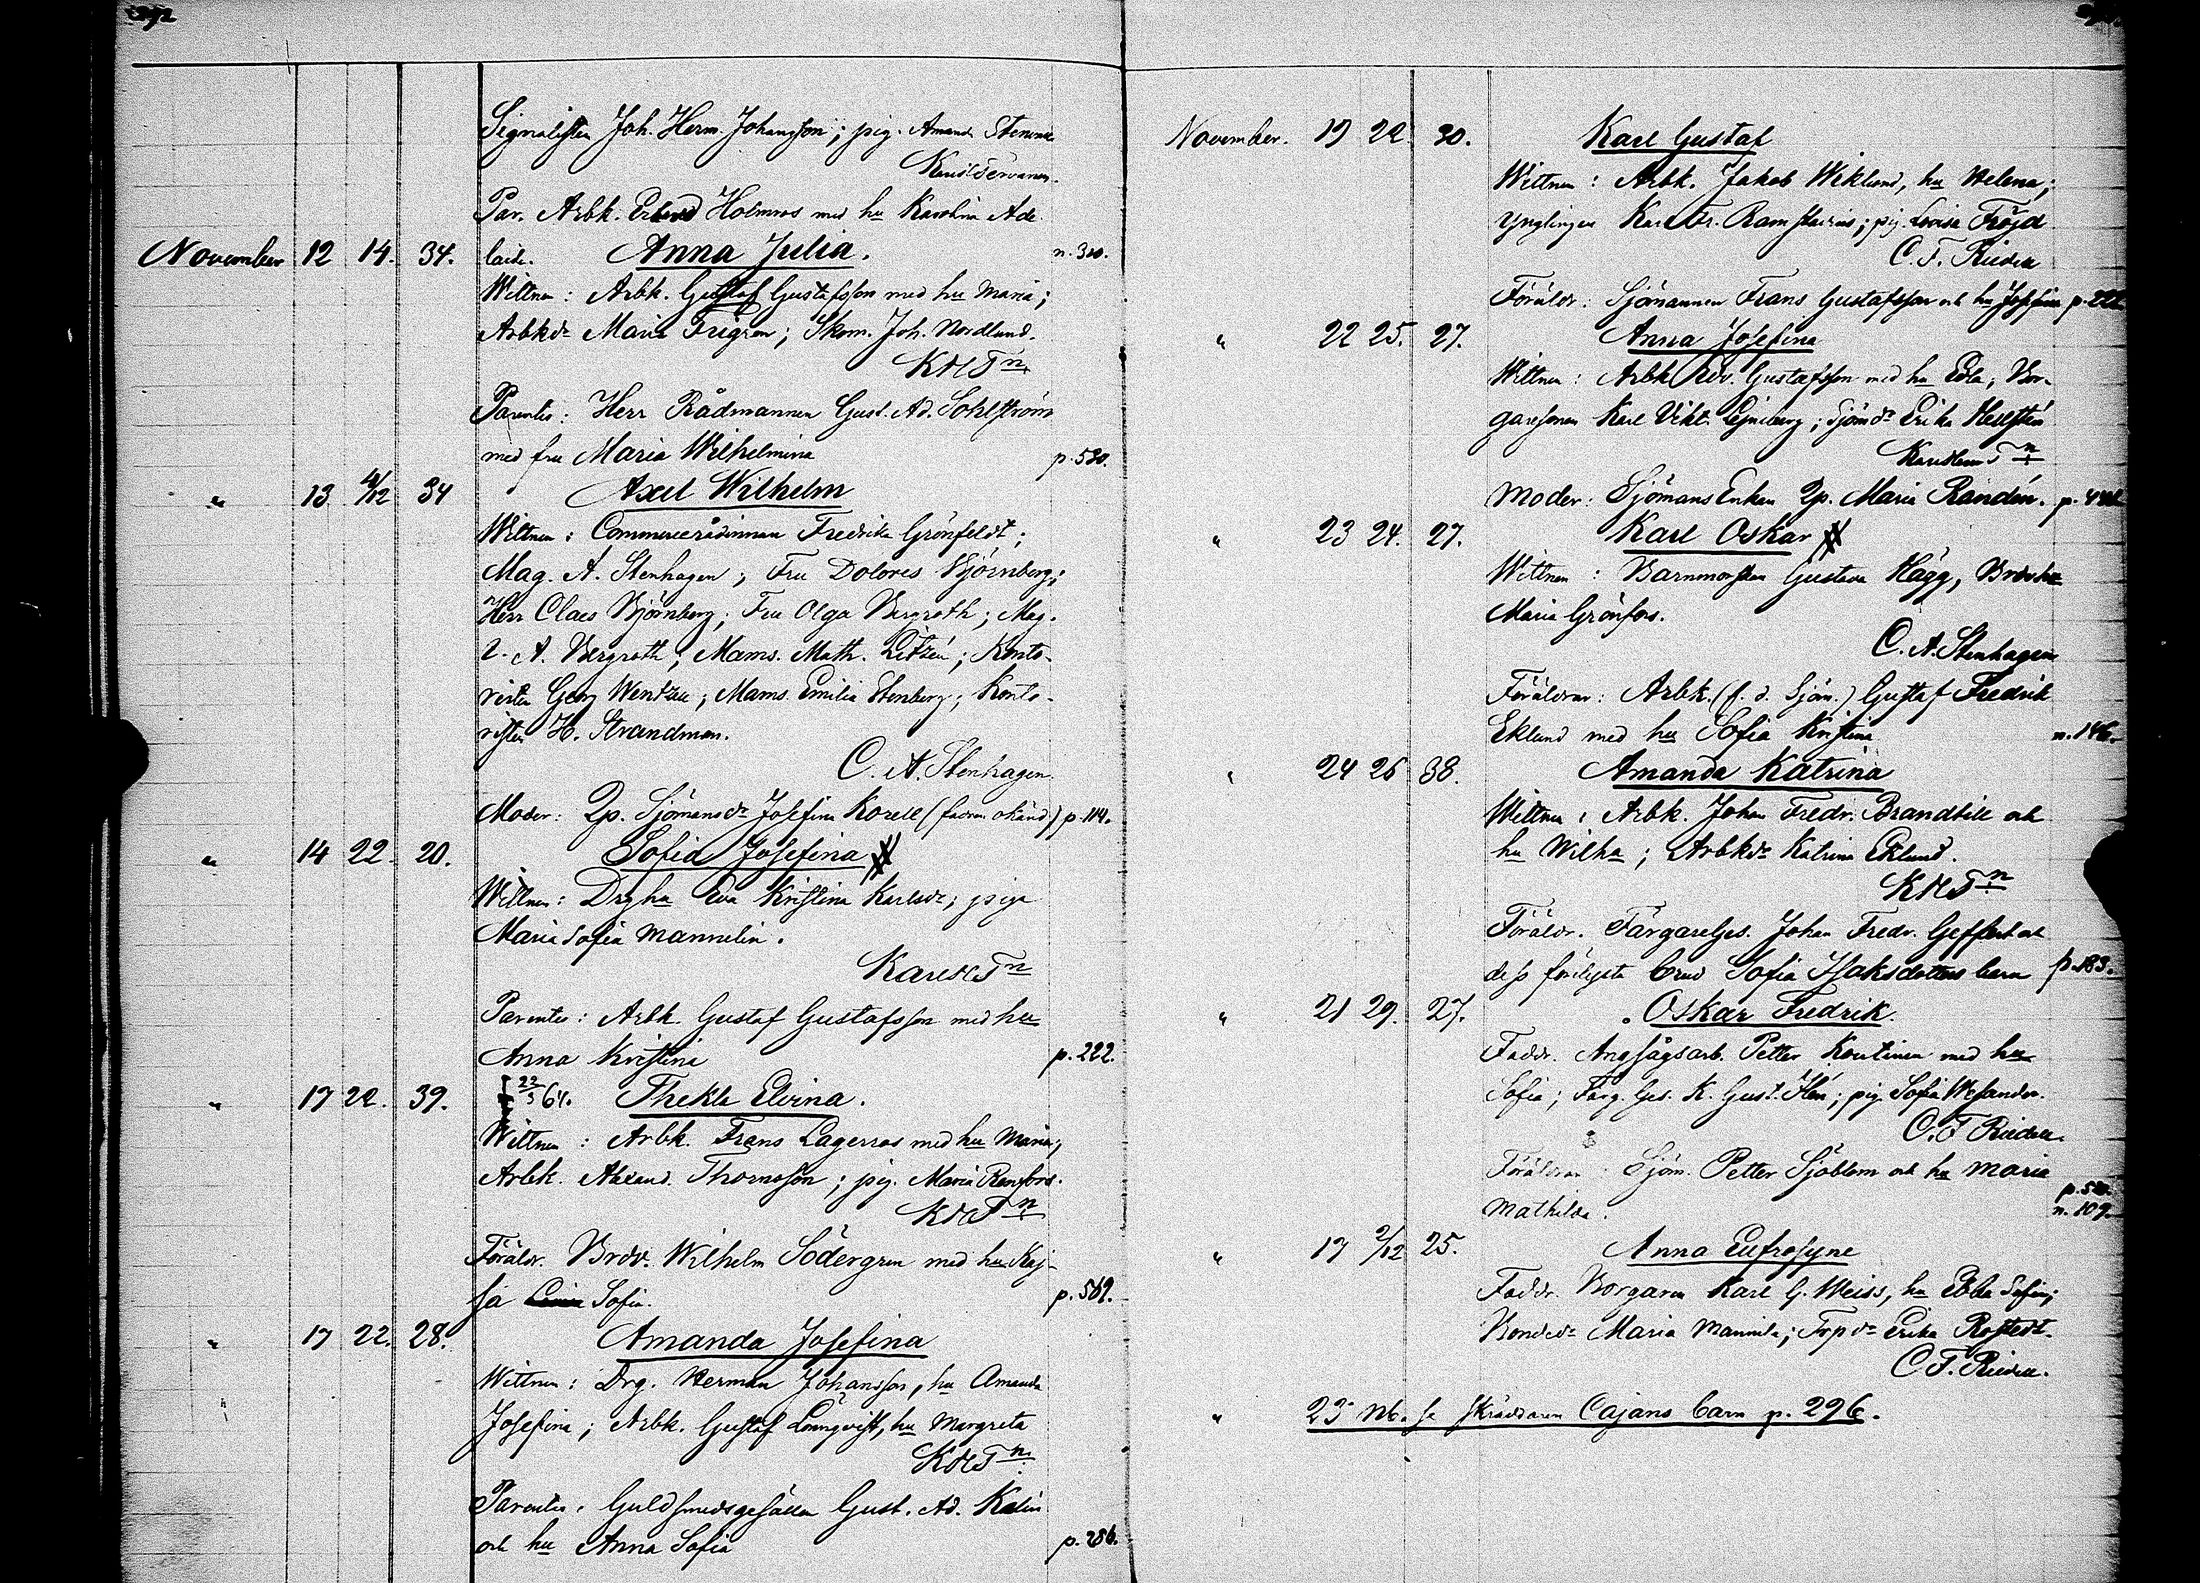 292
Signalisten Joh. Herm. Johansson; pig. Amanda
Par. Arbk. Holmros med hu Karolina Ade-
November 12 14. 34. laide. Anna Julia. n. 320.
Wittnen: Arbk. Gustaf Gustafsson med hu Maria;
Arbkdr Maria Frigren; Skom. Joh. Nordlund.
KHTn
Parentes: Herr Rådmannen Gust. Ad. Sohlström
med fru Maria Wilhelmina p. 530.
" 13 4/12 34 Axel Wilhelm
Wittnen: Commercerådinnan Fredrika Grönfeldt;
Mag. A. Stenhagen; Fru Dolores Björnberg;
Herr Claes Björnberg; Fru Olga Bergroth; Mag.
A. Bergroth; Mams. Math. Litzén; Konto-
risten Georg Wentzel; Mams. Emilia Stenberg; Konto-
risten H. Strandman.
C. A. Stenhagen
Moder: Qp. Sjömansdr Josefina Korell (fadren okänd) p. 114.
" 14 22. 20. Sofia Josefina
Wittnen: Drghu Eva Kristina Karlsdr; piga
Maria Sofia Mannelin.
Karl HTn
Parentes: Arbk. Gustaf Gustafsson med hu
Anna Kristina p. 222.
" 17 22. 39. Thekla Elvina.
Wittnen: Arbk. Frans Lagerros med hu Maria;
Arbk. Alexand. Thomsson; pig. Maria Renfors.
KHTn
Föräldr. Brdv. Wilhelm Södergren med hu Kaj-
sa Sofia. p. 569.
" 17 22. 28. Amanda Josefina
Wittnen: Drg. Herman Johansson, hu Amanda
Josefina; Arbk. Gustaf Lönnqvist, hu Margreta
KHTn
Parentes. Guldsmedsgesällen Gust. Ad. Kalin
och hu Anna Sofia p. 286.
November. 17 22. 30. Karl Gustaf
Wittnen: Arbk. Jakob Wiklund, hu Helena;
Ynglingen Karl Fr. Ramstadius; pig. Lovisa Fröjd
C. F. Riedell
Föräldr: Sjömannen Frans Gustafsson och hu Josefina p. 222
" 22 25. 27. Anna Josefina
Wittnen: Arbk. Gustafsson med hu Edla; Bor-
garesonen Karl Vikt. Sjömdr Erika Hellstén
Moder: Sjömans Enkan Qp. Maria Randén.
" 23 24. 27. Karl Oskar
Wittnen: Barnmorskan Gustava Hägg, Brdvhu
Maria Grönfors.
C. A. Stenhagen
Föräldrar: Arbk. (f. d. Sjöm.) Gustaf Fredrik
Eklund med hu Sofia Kristina n. 146.
" 24 26 38. Amanda Katrina
Wittnen: Arbk. Johan Fredr. Brandbill och
hu Wilha; Arbkdr Katrina Eklund.
KHTn
Föräldr. Färgareges. Johan Fredr. Geffert och
dess förliga brud Sofia Isaksdotters barn p. 183.
" 21 29. 27. Oskar Fredrik.
Faddr. Ångsågsarb. Petter Koutinen med hu
Sofia; Färg. Ges. K. Gust. pig. Sofia Wesander.
C. F. Riedell.
Föräldrar: Sjöm. Petter Sjöblom och hu Maria
Mathilda. n. 109.
" 17 2/12 25. Anna Eufrosyne
Faddr. Borgaren Karl G. Weiss, hu Ebba Sofia;
Bondedr Maria Mannila; Trpdr Erika Rostedt.
C. F. Riedell.
" 23 Nb. se skräddaren Cajans barn p. 296.